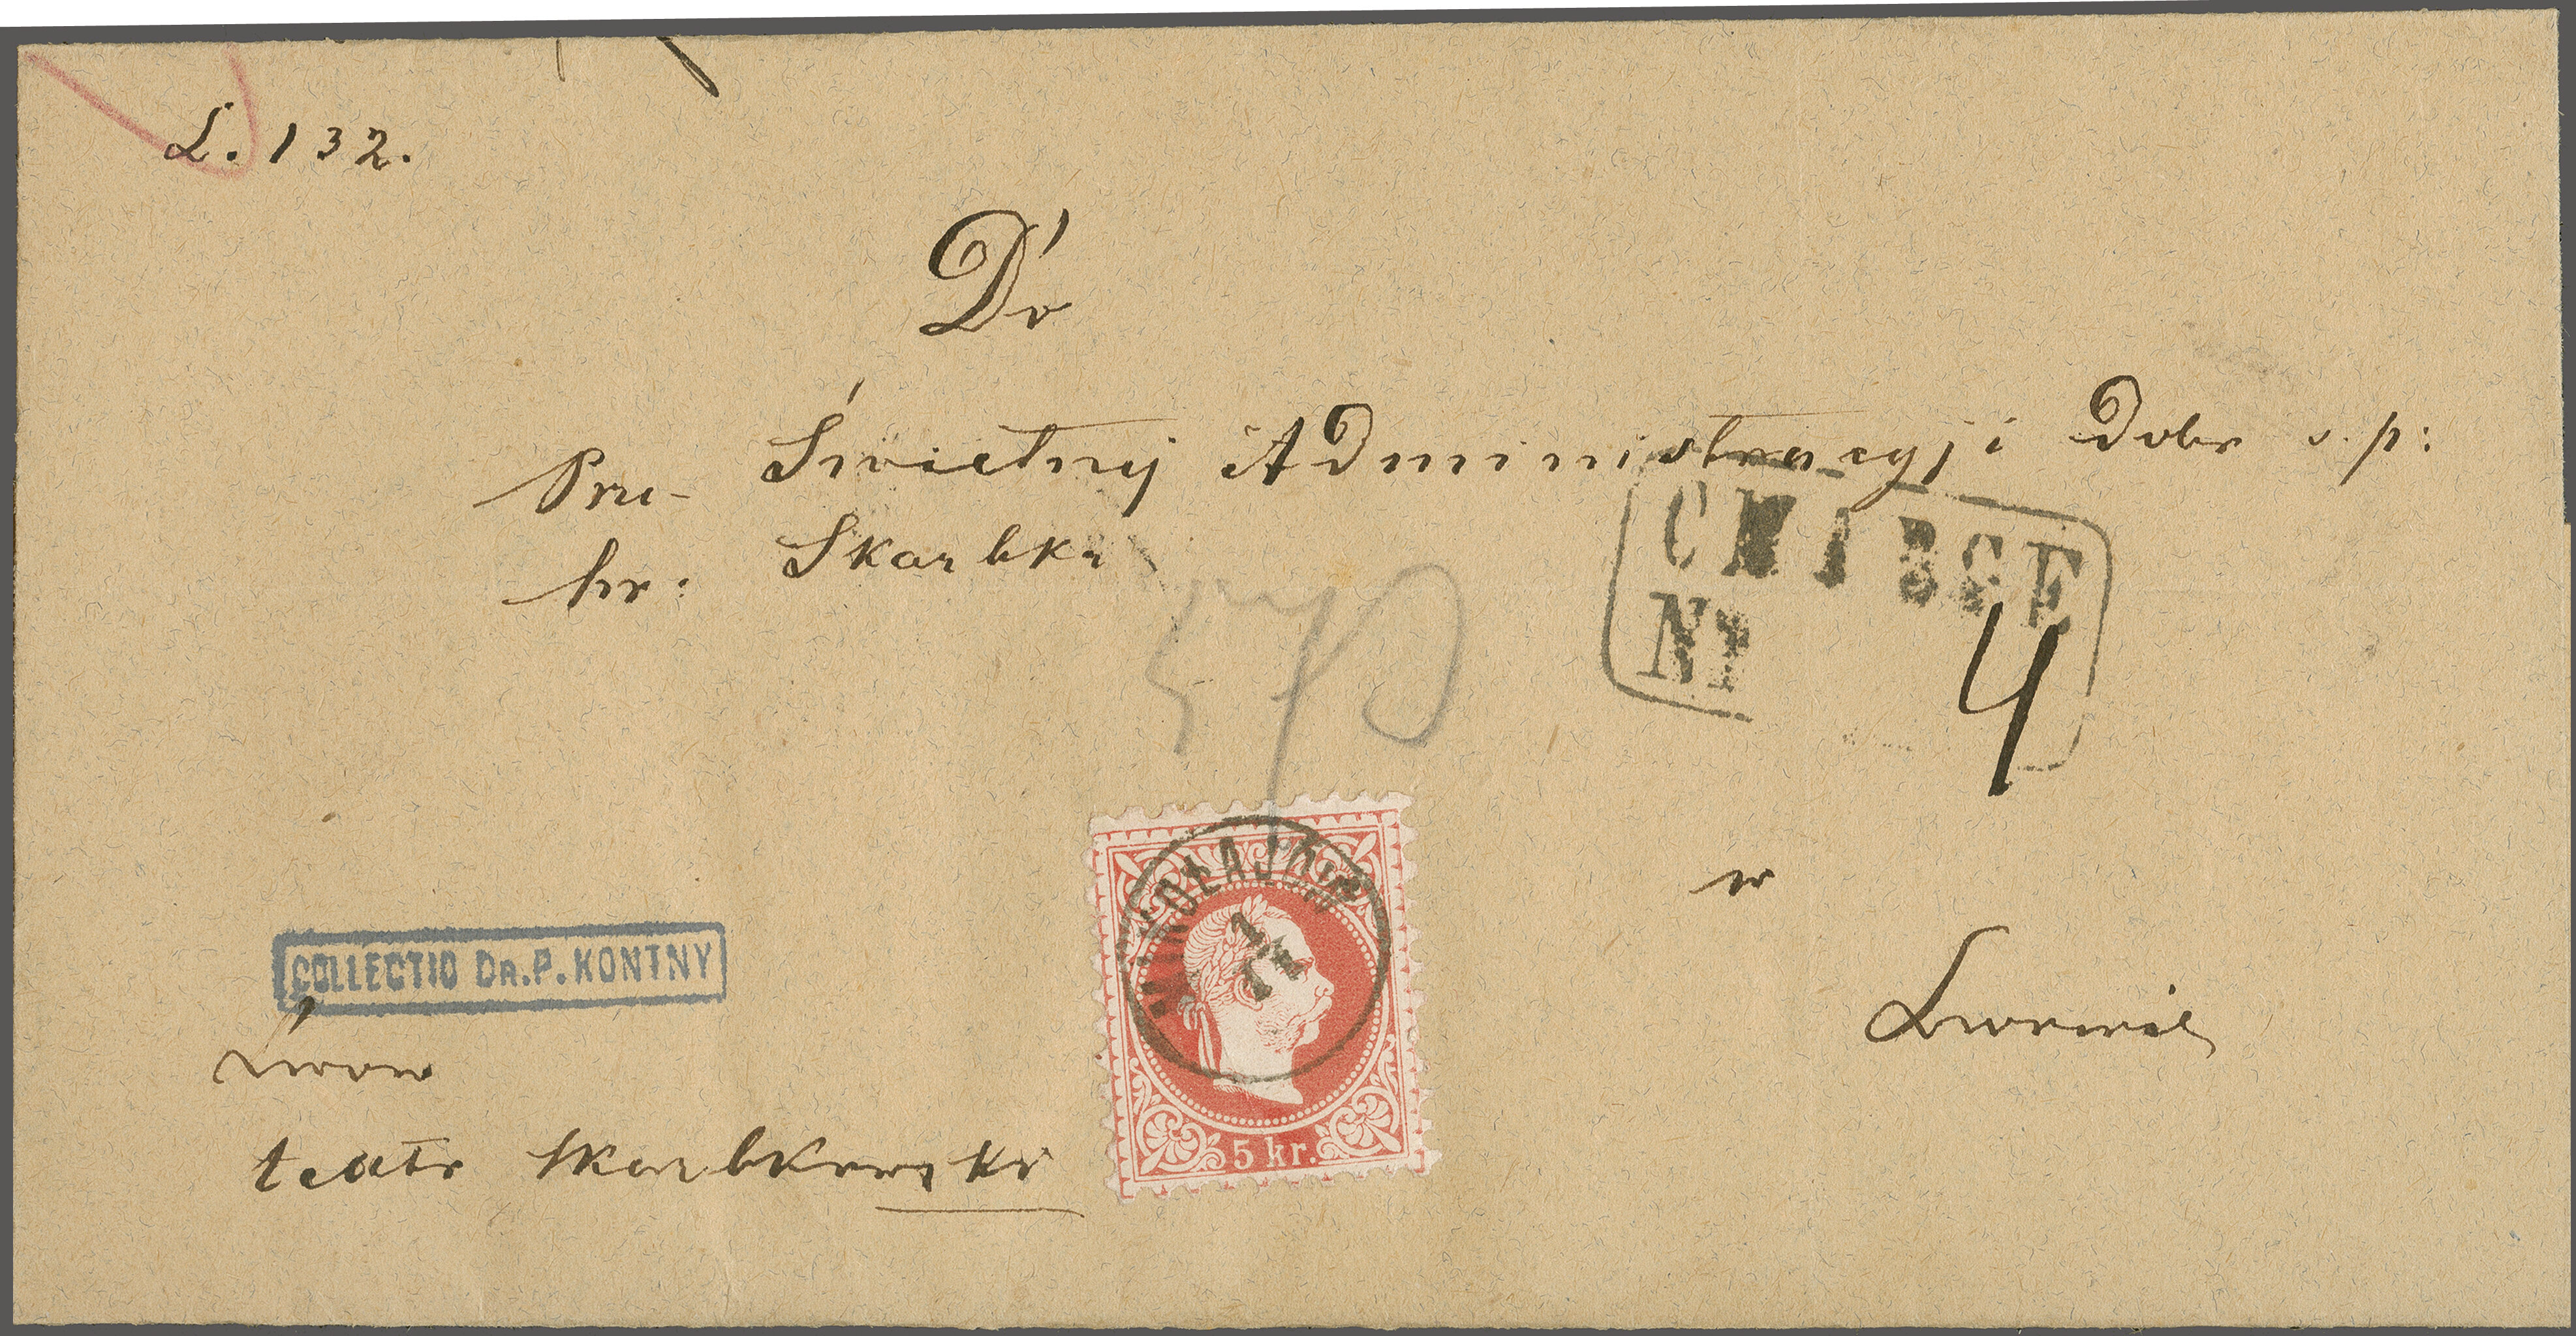 L. 132.
Do
Prze-
Świetnej Administracyji Dobr ś. p:
hr: Skarbka
CHARGE
Nr 4
w
Lwowie
COLLECTIO DR. P. KONTNY
Lwów
teatr skarbkowski
MIKOŁAJÓW
5 kr.